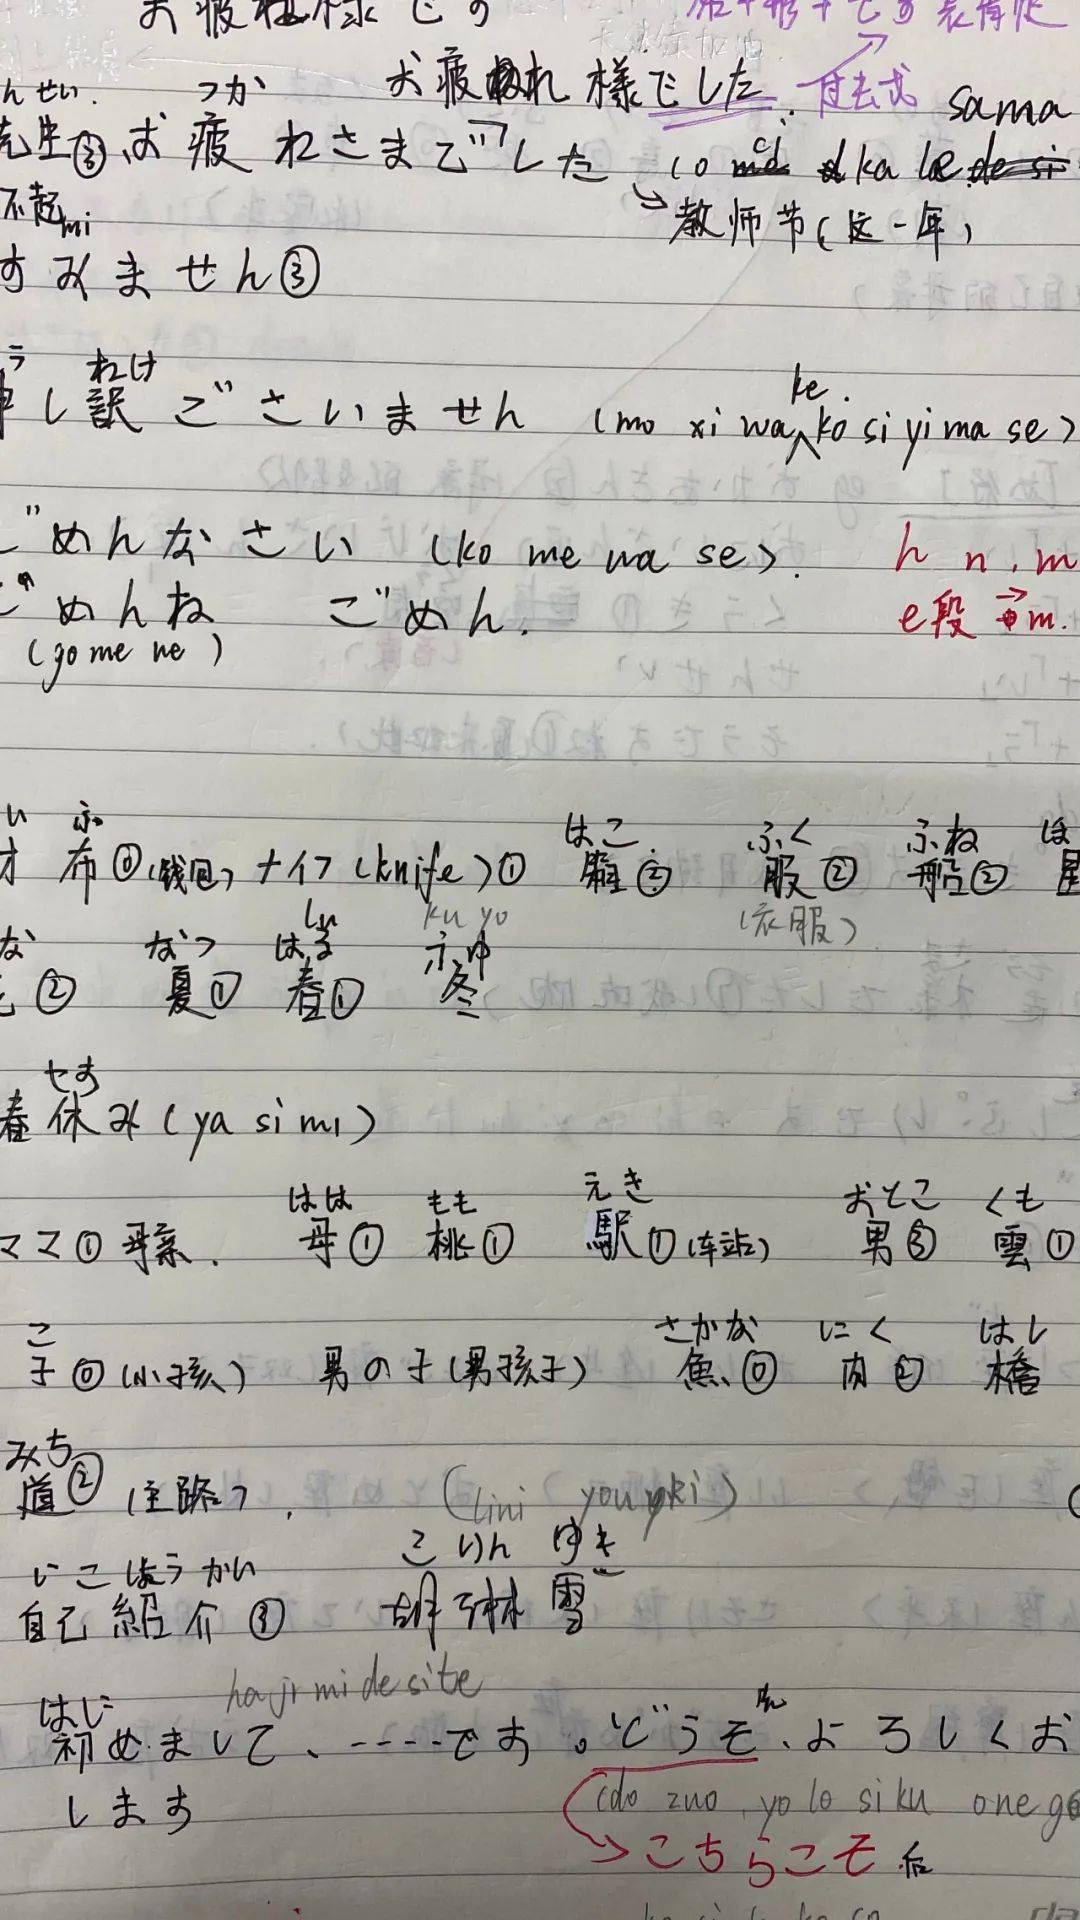 お疲れ様です
お疲れ様でした 过去式 sama
んせい つか
先生③、お疲れさまでした co ka le
不起 mi →教师节(这一年)
すみません③
う わけ ke
申し訳ございません (mo xi wa ko si yi ma se)
ごめんなさい (ko me na se). h n, m
ごめんね ごめん. e段→m.
(go me ne)
い ふ はこ ふく ふね ほ
才布⓪(钱包) ナイフ(knife)① 箱② 服② 船②
lu ku yo (衣服)
な なつ はる ふゆ
② 夏① 春① 冬
やす
春休み(ya si mi)
はは もも えき おとこ くも
ママ①母亲. 母① 桃① 駅①(车站) 男③ 雲①
こ さかな にく はし
子⓪(小孩) 男の子(男孩子) 魚⓪ 肉② 橋
みち
道②(主路). (lini you yuki)
こ りん ゆき
じこしょうかい
自己紹介③ 胡琳雪
はじ hajimidesite
初めまして、----です。どうぞ、よろしくお
します (do zuo yo lo si ku one g
→こちらこそ 后